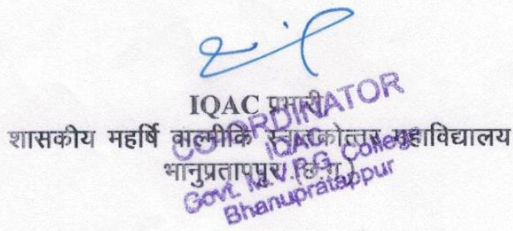 IQAC प्रभारी
शासकीय महर्षि वाल्मीकि स्नातकोत्तर महाविद्यालय
भानुप्रतापपुर (छ.ग.)
COORDINATOR
IQAC
Govt. M.V.P.G. College
Bhanupratappur